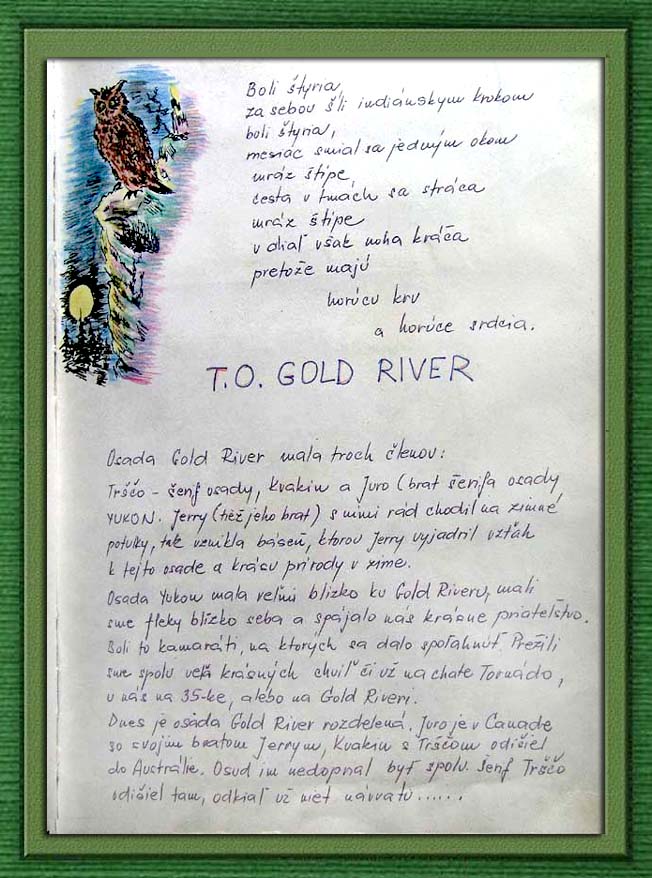 Boli štyria,
za sebou šli indiánskym krokom
boli štyria,
mesiac smial sa jedným okom
mráz štípe,
cesta v tmách sa stráca
mráz štípe
v diaľ však noha kráča
pretože majú
horúcu krv
a horúce srdcia.
T.O. GOLD RIVER
Osada Gold River mala troch členov:
Trščo - šerif osady, Kvakin a Juro (brat šerifa osady
YUKON. Jerry (tiež jeho brat) s nimi rád chodil na zimné
potulky, tak vznikla báseň, ktorou Jerry vyjadril vzťah
k tejto osade a krásu prírody v zime.
Osada Yukon mala veľmi blízko ku Gold Riveru, mali
sme fleky blízko seba a spájalo nás krásne priateľstvo.
Boli to kamaráti, na ktorých sa dalo spoľahnúť. Prežili
sme spolu veľa krásnych chvíľ či už na chate Tornádo,
u nás na 35-ke, alebo na Gold Riveri.
Dnes je osada Gold River rozdelená. Juro je v Canade
so svojim bratom Jerrym, Kvakin s Trščom odišiel
do Austrálie. Osud im nedoprial byť spolu. Šerif Tršćo
odišiel tam, odkiaľ už niet návratu......